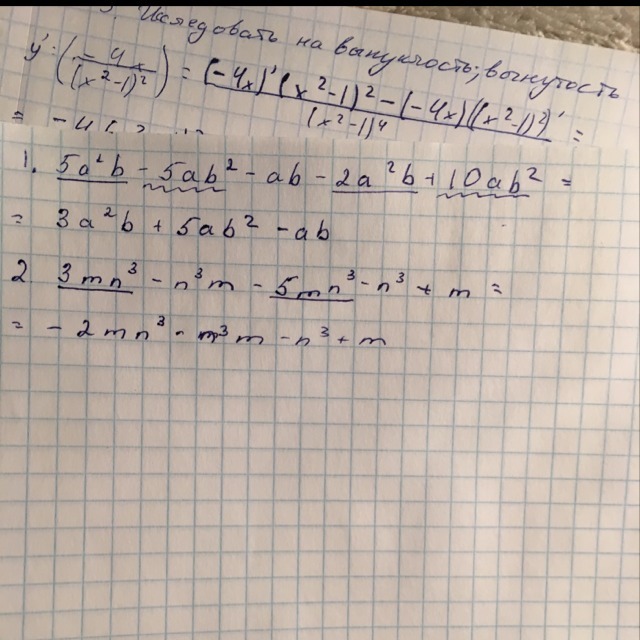 Исследовать на выпуклость; вогнутость
y'' = (-4x/(x²-1)²)' = ((-4x)'(x²-1)² - (-4x)((x²-1)²)')/(x²-1)⁴ =
= -4(
1. 5a²b - 5ab² - ab - 2a²b + 10ab² =
= 3a²b + 5ab² - ab
2 3mn³ - n³m - 5mn³ - n³ + m =
= - 2mn³ - n³m - n³ + m